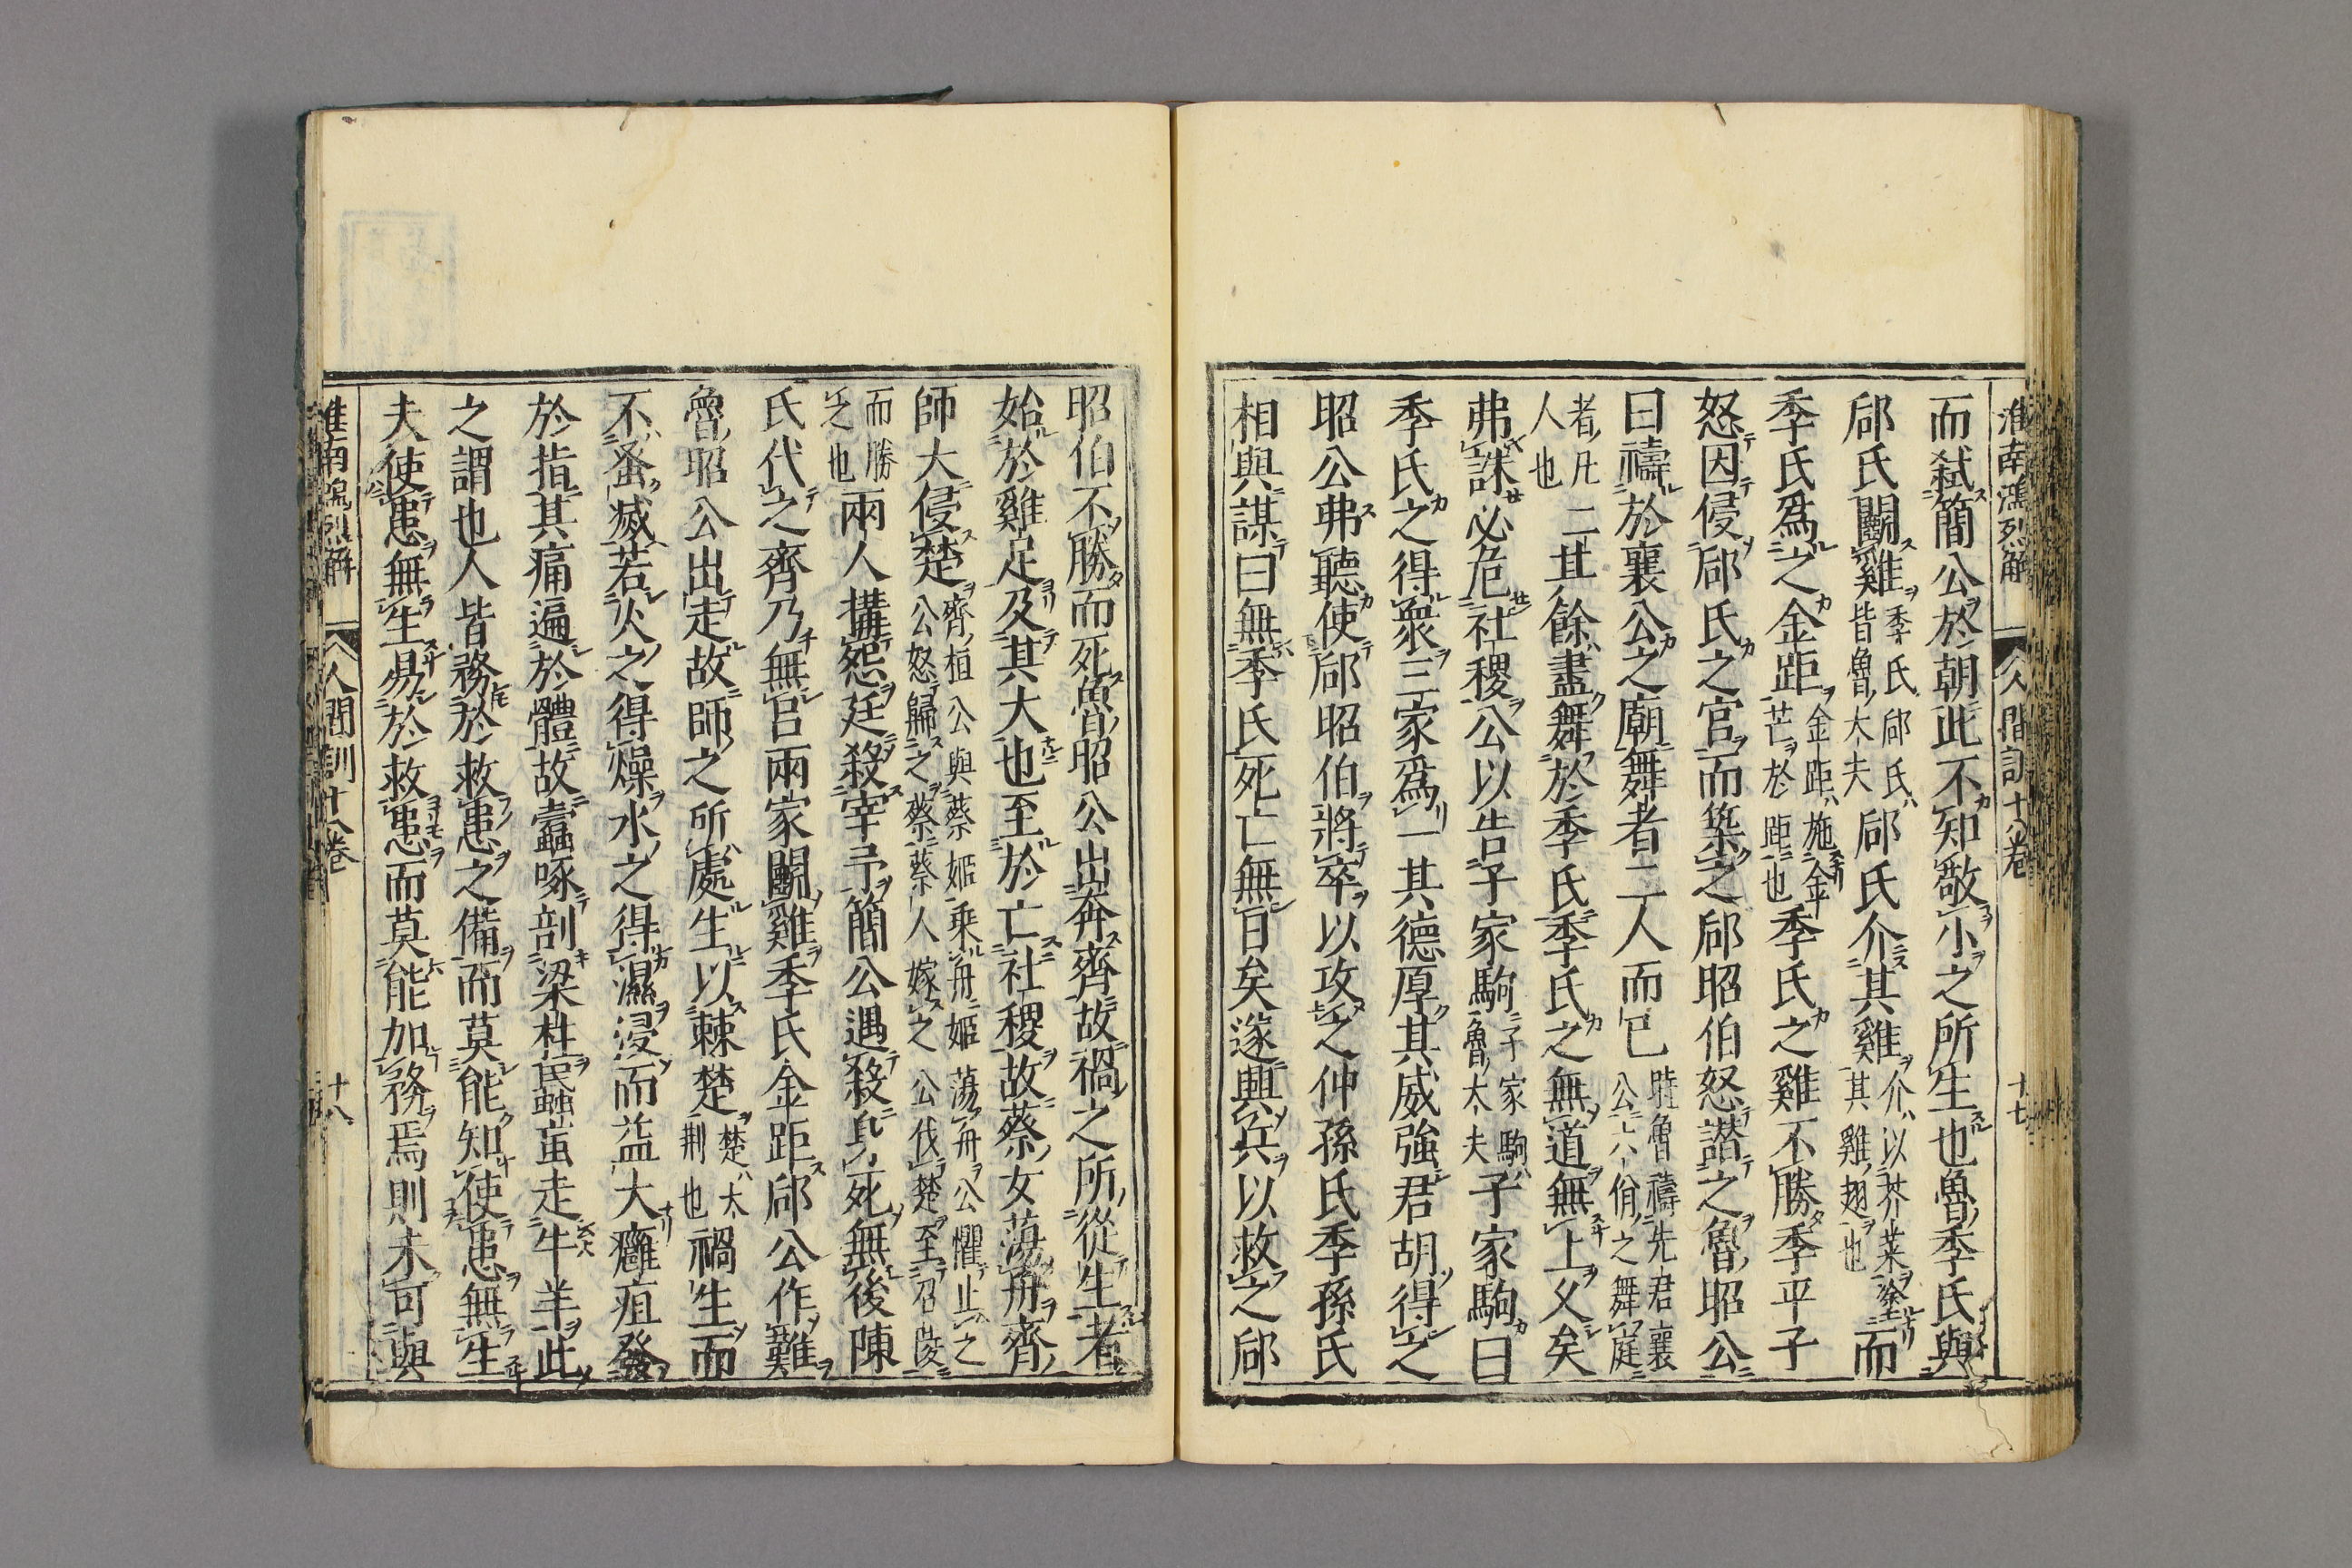 淮南鴻烈解 人間訓十八卷 十七
而弑簡公於朝此不知敬小之所生也魯季氏與
郈氏鬭雞季氏郈氏皆魯大夫郈氏介其雞介以芥菜塗其雞翅也而
季氏爲之金距金距施金芒於距也季氏之雞不勝季平子
怒因侵郈氏之宮而築之郈昭伯怒譖之魯昭公
曰禱於襄公之廟舞者二人而已時魯禱先君襄公六佾之舞庭
者凡二人也其餘盡舞於季氏季氏之無道無上久矣
弗誅必危社稷公以告子家駒子家駒魯大夫子家駒曰
季氏之得衆三家爲一其德厚其威強君胡得之
昭公弗聽使郈昭伯將卒以攻之仲孫氏季孫氏
相與謀曰無季氏死亡無日矣遂興兵以救之郈
昭伯不勝而死魯昭公出奔齊故禍之所從生者
始於雞足及其大也至於亡社稷故蔡女蕩舟齊
師大侵楚齊桓公與蔡姬乘舟姬蕩舟公懼止之公怒歸之蔡蔡人嫁之公伐楚至召陵
而勝之也兩人搆怨廷殺宰予簡公遇殺身死無後陳
氏代之齊乃無呂兩家鬭雞季氏金距郈公作難
魯昭公出走故師之所處生以棘楚楚大荊也禍生而
不蚤滅若火之得燥水之得濕浸而益大癰疽發
於指其痛遍於體故蠹啄剖梁柱蟁蝱走牛羊此
之謂也人皆務於救患之備而莫能知使患無生
夫使患無生易於救患而莫能加務焉則未可與
淮南鴻烈解 人間訓十八卷 十八